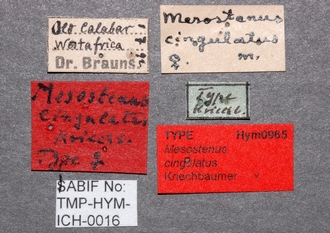 Old Calabar
Westafrica
Dr. Brauns
Mesostenus
cingulatus
♀. m.
Mesostenus
cingulatus
Kriechb.
Type ♀
Type
Kriechb.
TYPE Hym0965
Mesostenus
cingulatus
Kriechbaumer
SABIF No:
TMP-HYM-
ICH-0016